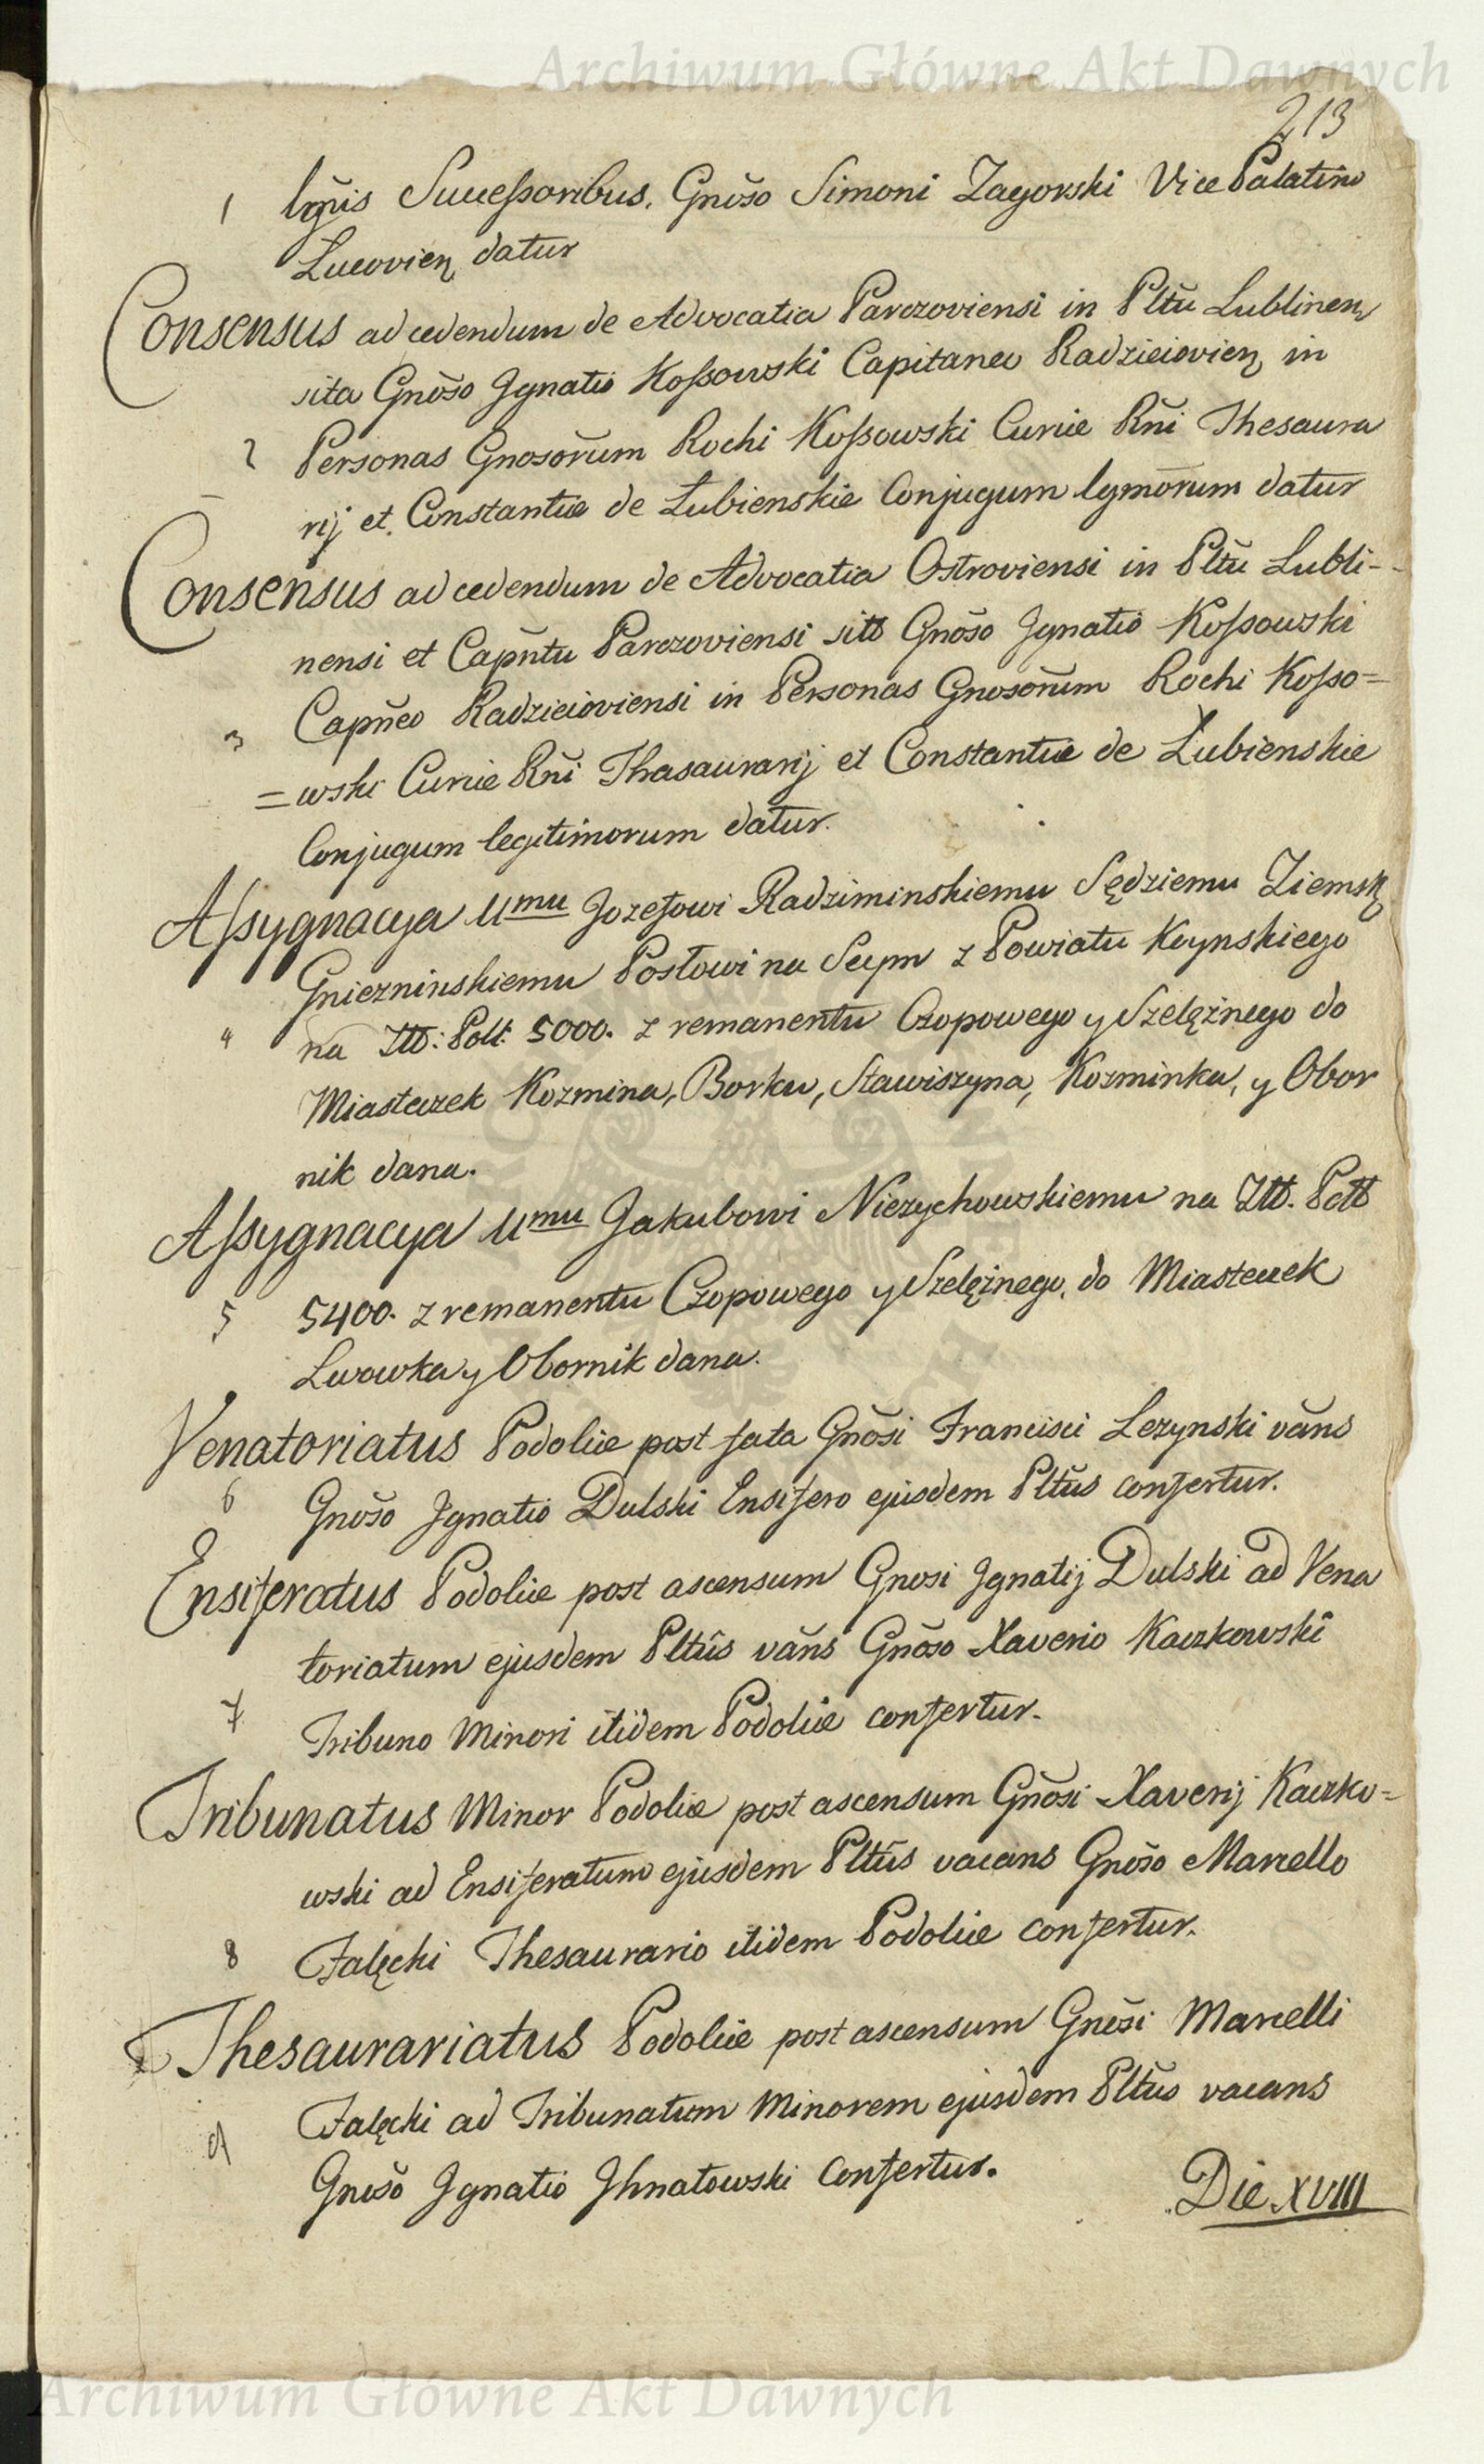 Archiwum Główne Akt Dawnych
213
1 lgm̃is Successoribus. Gnõso Simoni Zagorski Vice Palatino
Lucovien datur
Consensus ad cedendum de Advocatia Parczoviensi in Pltũ Lublinen
sita Gnõso Jgnatio Kossowski Capitaneo Radzieiovien in
2 Personas Gnosorũm Rochi Kossowski Curiæ Rñi Thesaura
rij et Constantiæ de Łubienskie Conjugum lgmõrum datur
Consensus ad cedendum de Advocatia Ostroviensi in Pltũ Lubli-
nensi et Capñtu Parczoviensi sitõ Gnõso Jgnatio Kossowski
3 Capñeo Radzieioviensi in Personas Gnosorũm Rochi Kosso=
=wski Curiæ Rñi Thasaurarij et Constantiæ de Łubienskie
Conjugum legitimorum datur.
Assygnacya Umu Jozefowi Radziminskiemu Sędziemu Ziemsk
Gniezninskiemu Posłowi na Seym z Powiatu Kcynskiego
4 na Złł: Poll: 5000. z remanentu Czopowego y Szelężnego do
Miasteczek Kozmina, Borku, Stawiszyna, Kozminka, y Obor
nik dana.
Assygnacya Umu Jakubowi Niezychowskiemu na Złł. Poll
5 5400. z remanentu Czopowego y Szelężnego, do Miasteczek
Lwowka y Obornik dana.
Venatoriatus Podoliæ post fata Gnõsi Francisci Lezynski vãns
6 Gnõso Jgnatio Dulski Ensifero ejusdem Pltũs confertur.
Ensiferatus Podoliæ post ascensum Gnosi Jgnatij Dulski ad Vena
toriatum ejusdem Pltũs vãns Gnõso Xaverio Kaczkowski
7 Tribuno Minori itidem Podoliæ confertur.
Tribunatus Minor Podoliæ post ascensum Gnõsi Xaverij Kaczko=
wski ad Ensiferatum ejusdem Pltũs vacans Gnõso Marcello
8 Falęcki Thesaurario itidem Podoliæ confertur.
Thesaurariatus Podoliæ post ascensum Gnõsi Marcelli
Falęcki ad Tribunatum Minorem ejusdem Pltũs vacans
9 Gnõso Jgnatio Jhnatowski Confertur.
Die XVIII
Archiwum Główne Akt Dawnych